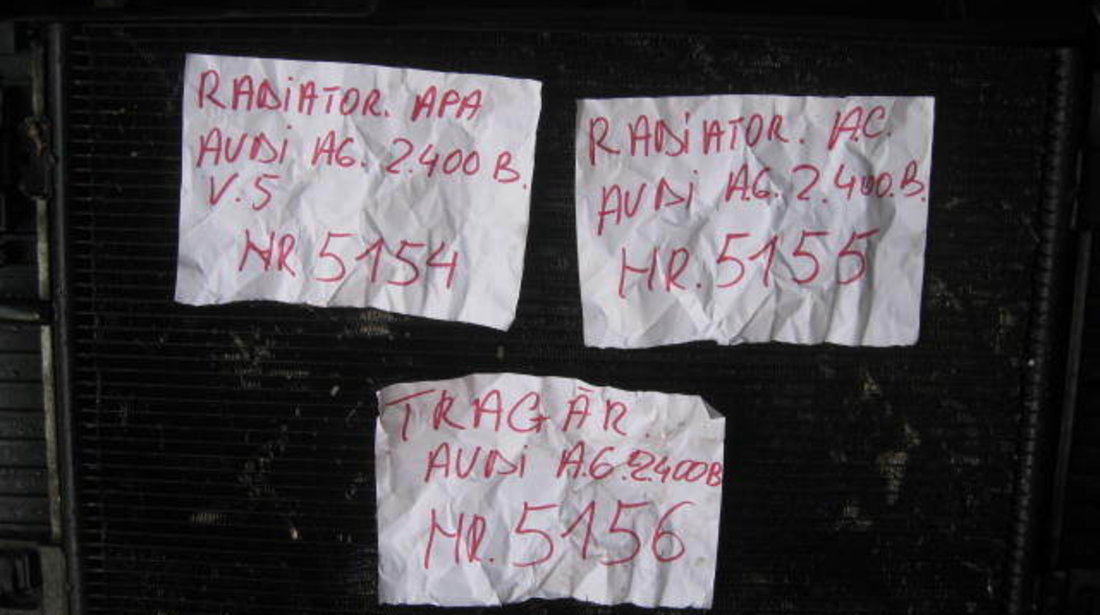 RADiATOR. APA
AUDi A6. 2.400 B.
V.5
NR 5154
RADiATOR. A.C.
AUDi A.6. 2.400.B.
NR. 5155
TRAGĂR.
AUDi A.6. 2.400B
NR. 5156